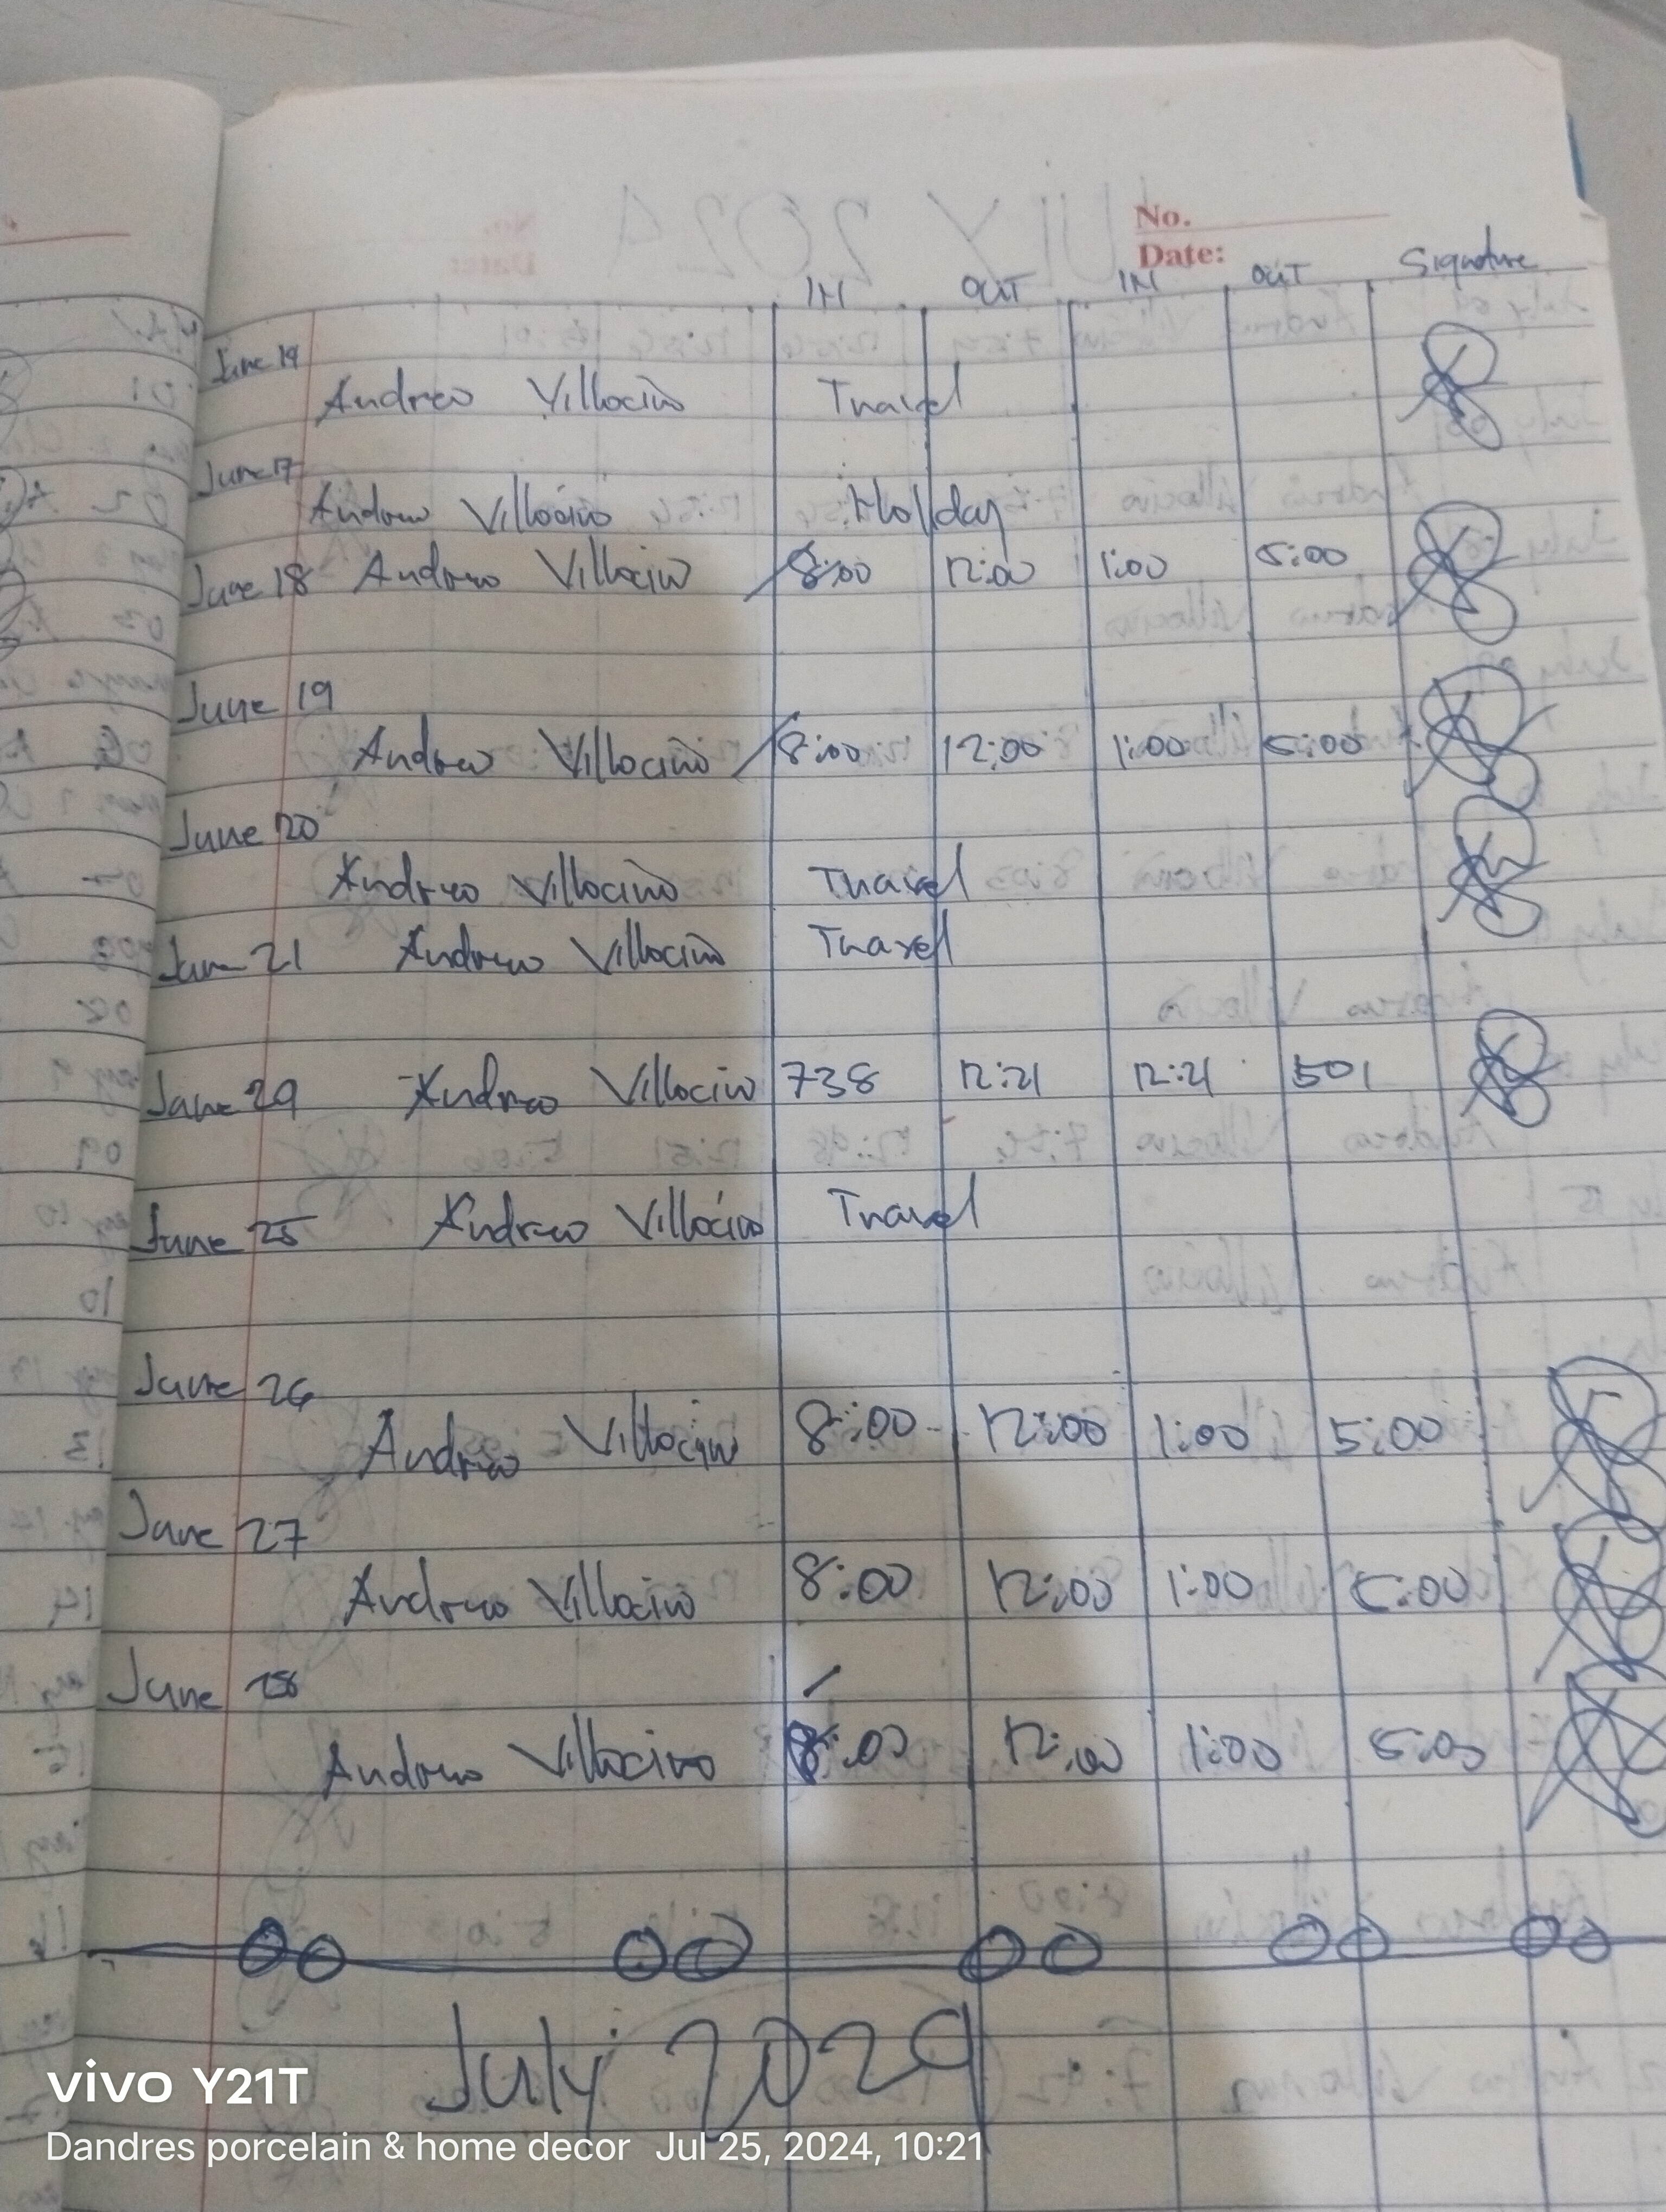 No.
Date:
IN OUT IN OUT Signature
June 14
Andrew Villocino Travel
June 17
Andrew Villocino Holiday
June 18 Andrew Villocino 8:00 12:00 1:00 5:00
June 19
Andrew Villocino 8:00 12:00 1:00 5:00
June 20
Andrew Villocino Travel
June 21 Andrew Villocino Travel
June 24 Andrew Villocino 738 12:21 12:21 501
June 25 Andrew Villocino Travel
June 26
Andrew Villocino 8:00 12:00 1:00 5:00
June 27
Andrew Villocino 8:00 12:00 1:00 5:00
June 28
Andrew Villocino 8:00 12:00 1:00 5:00
July 2024
vivo Y21T
Dandres porcelain & home decor Jul 25, 2024, 10:21